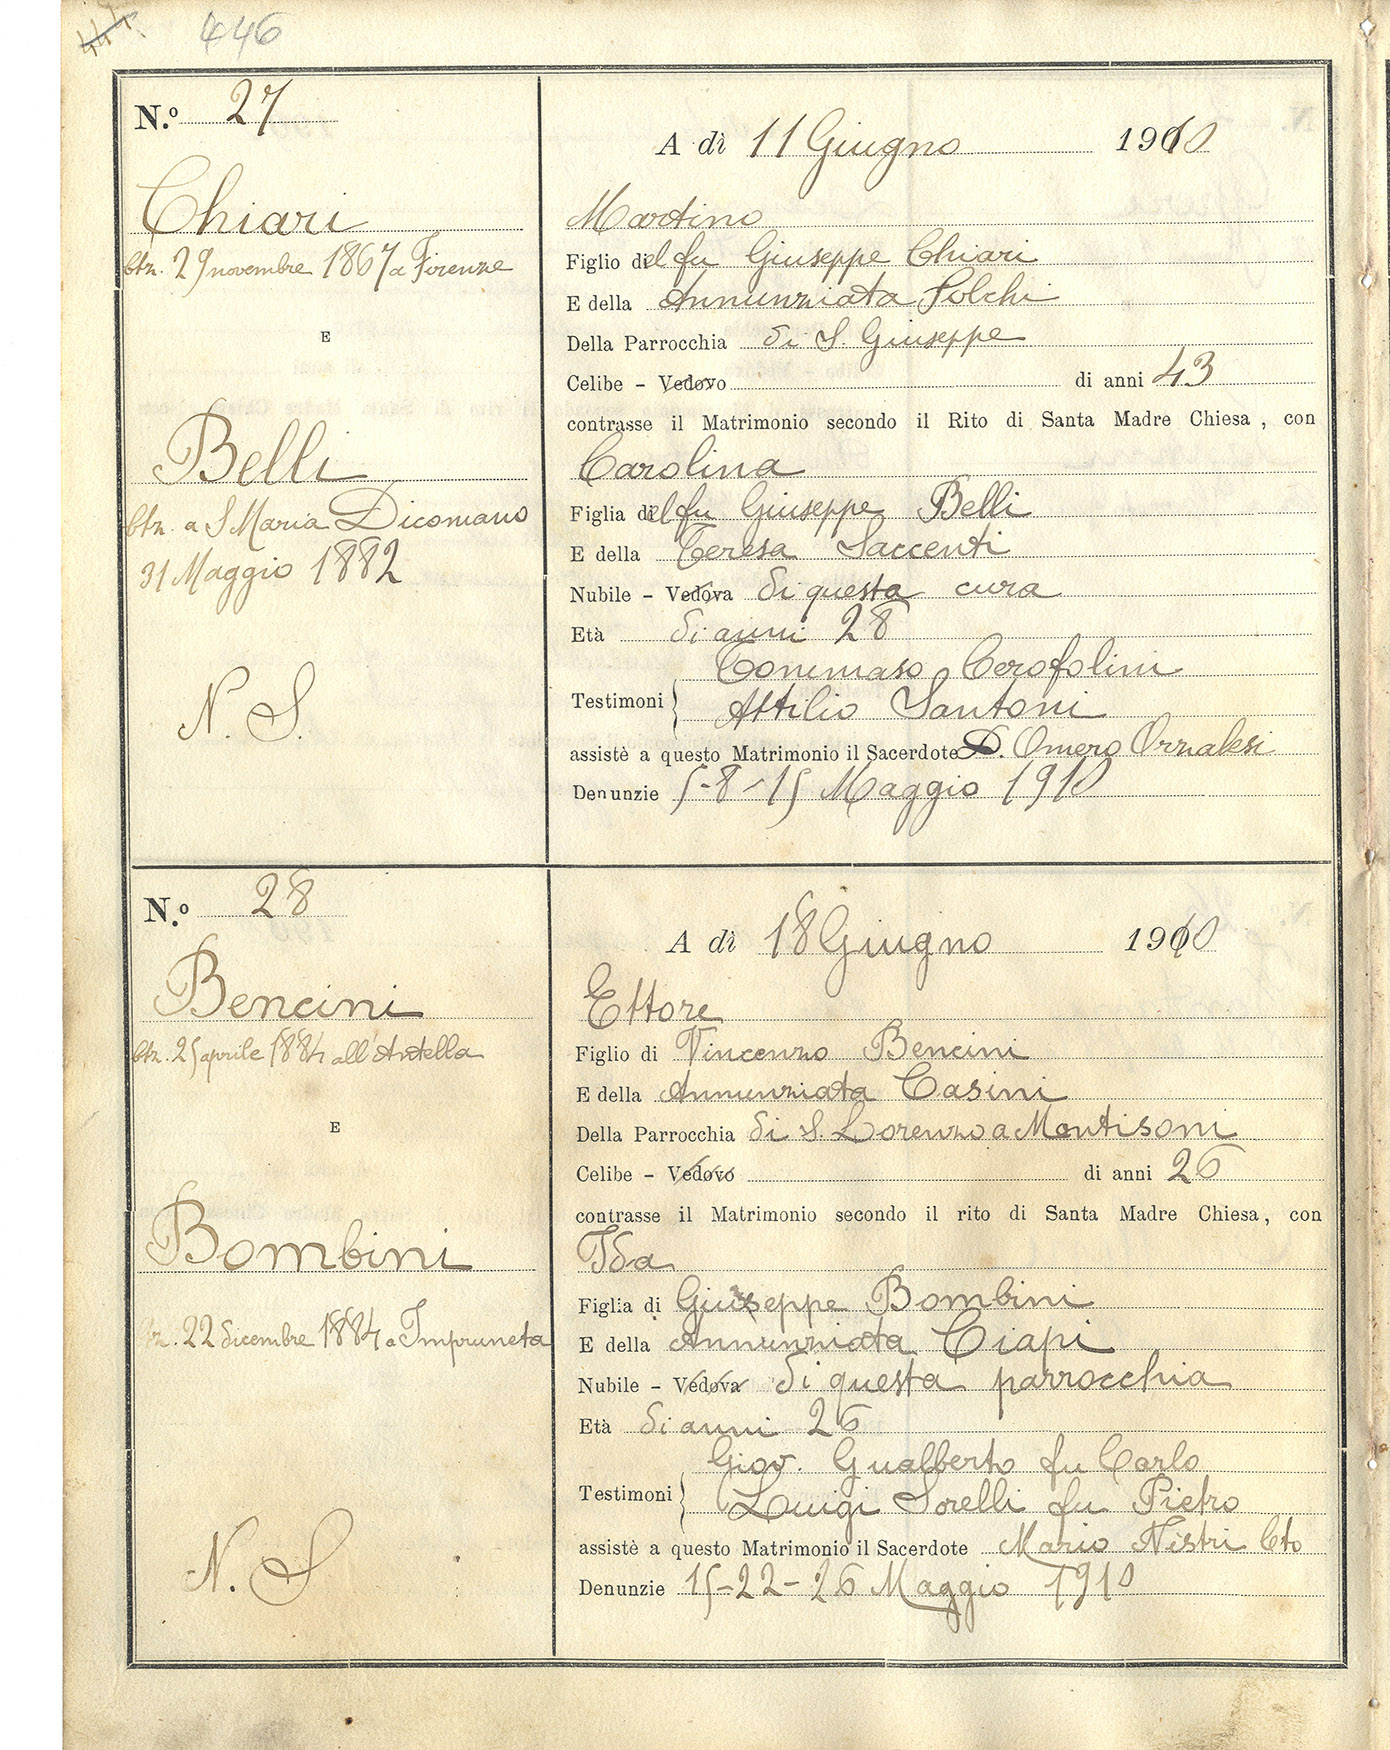 446
N.º 27
Chiari
btz. 29 novembre 1867 a Firenze
E
Belli
btz. a S Maria Dicomano
31 Maggio 1882
N. S.
A dì 11 Giugno 1910
Martino
Figlio del fu Giuseppe Chiari
E della Annunziata Solchi
Della Parrocchia di S. Giuseppe
Celibe - Vedovo di anni 43
contrasse il Matrimonio secondo il Rito di Santa Madre Chiesa, con
Carolina
Figlia del fu Giuseppe Belli
E della Teresa Saccenti
Nubile - Vedova di questa cura
Età di anni 28
Tommaso Cerofolini
Testimoni
Attilio Santoni
assistè a questo Matrimonio il Sacerdote D. Omero
Denunzie 5-8-15 Maggio 1910
N.º 28
Bencini
btz. 25 aprile 1884 all'Antella
E
Bombini
btz. 22 dicembre 1884 a Impruneta
N. S
A dì 18 Giugno 1910
Ettore
Figlio di Vincenzo Bencini
E della Annunziata Casini
Della Parrocchia di S. Lorenzo a Montisoni
Celibe - Vedovo di anni 26
contrasse il Matrimonio secondo il rito di Santa Madre Chiesa, con
Ida
Figlia di Giuseppe Bombini
E della Annunziata Ciapi
Nubile - Vedova di questa parrocchia
Età di anni 26
Giov. Gualberto fu Carlo
Testimoni
Luigi Sorelli fu Pietro
assistè a questo Matrimonio il Sacerdote Mario Nistri Cto
Denunzie 15-22-26 Maggio 1910